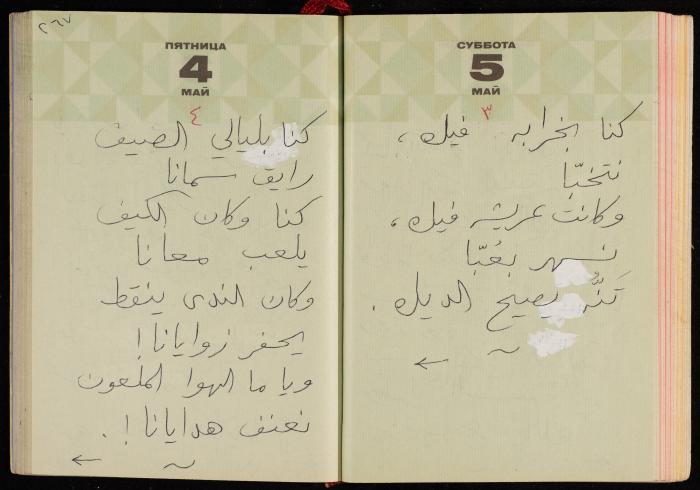 ٢٦٧
ПЯТНИЦА
4
МАЙ
٤
كنا بليالي الصيف
رايق سمانا
كنا وكان الكيف
يلعب معانا
وكان الندى ينقط
يحفر زوايانا!
ويا ما الهوا الملعون
نعنف هدايانا!.
~
←
СУББОТА
5
МАЙ
٣
كنا بخرابه فيك،
نتخبّا
وكانت عريشه فيك،
نسهر بعُبّا
تَنُّه يصيح الديك.
~
←